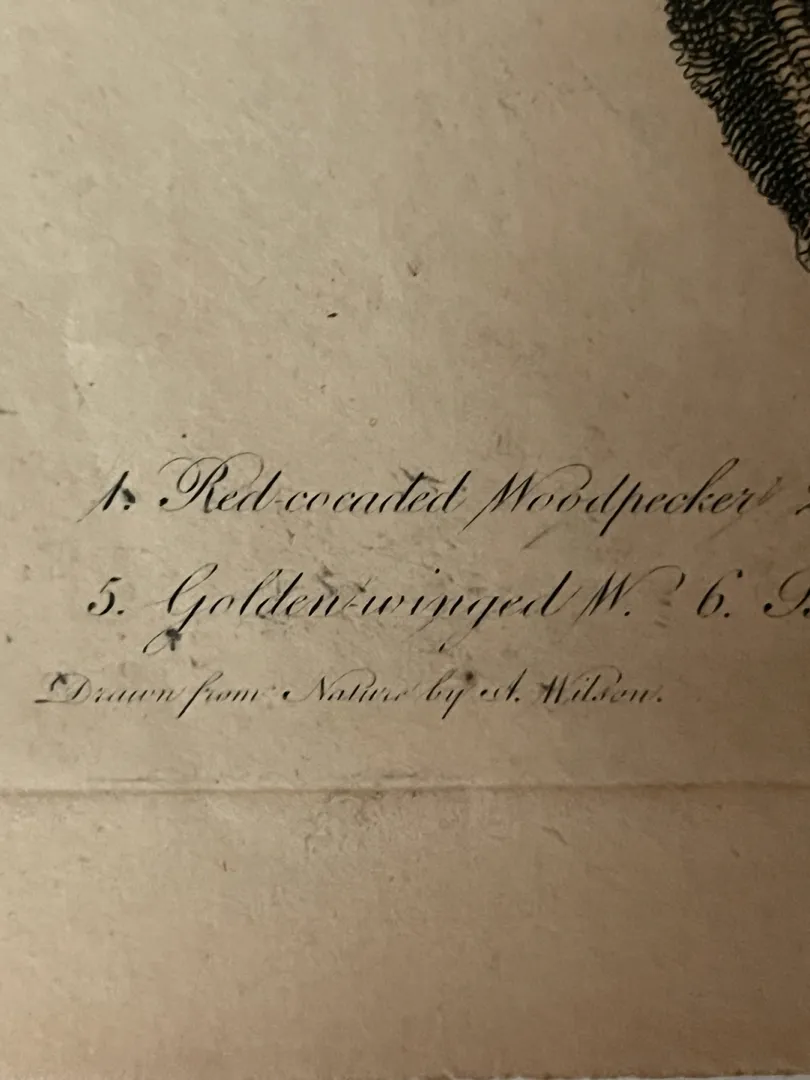 1. Red-cocaded Woodpecker
5. Golden-winged W. 6.
Drawn from Nature by A. Wilson.